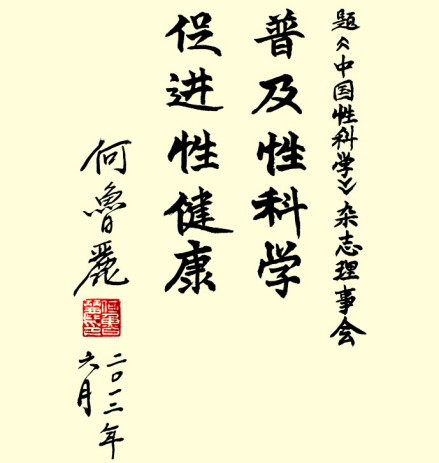 题《中国性科学》杂志理事会
普及性科学
促进性健康
何魯麗
二〇一二年
六月